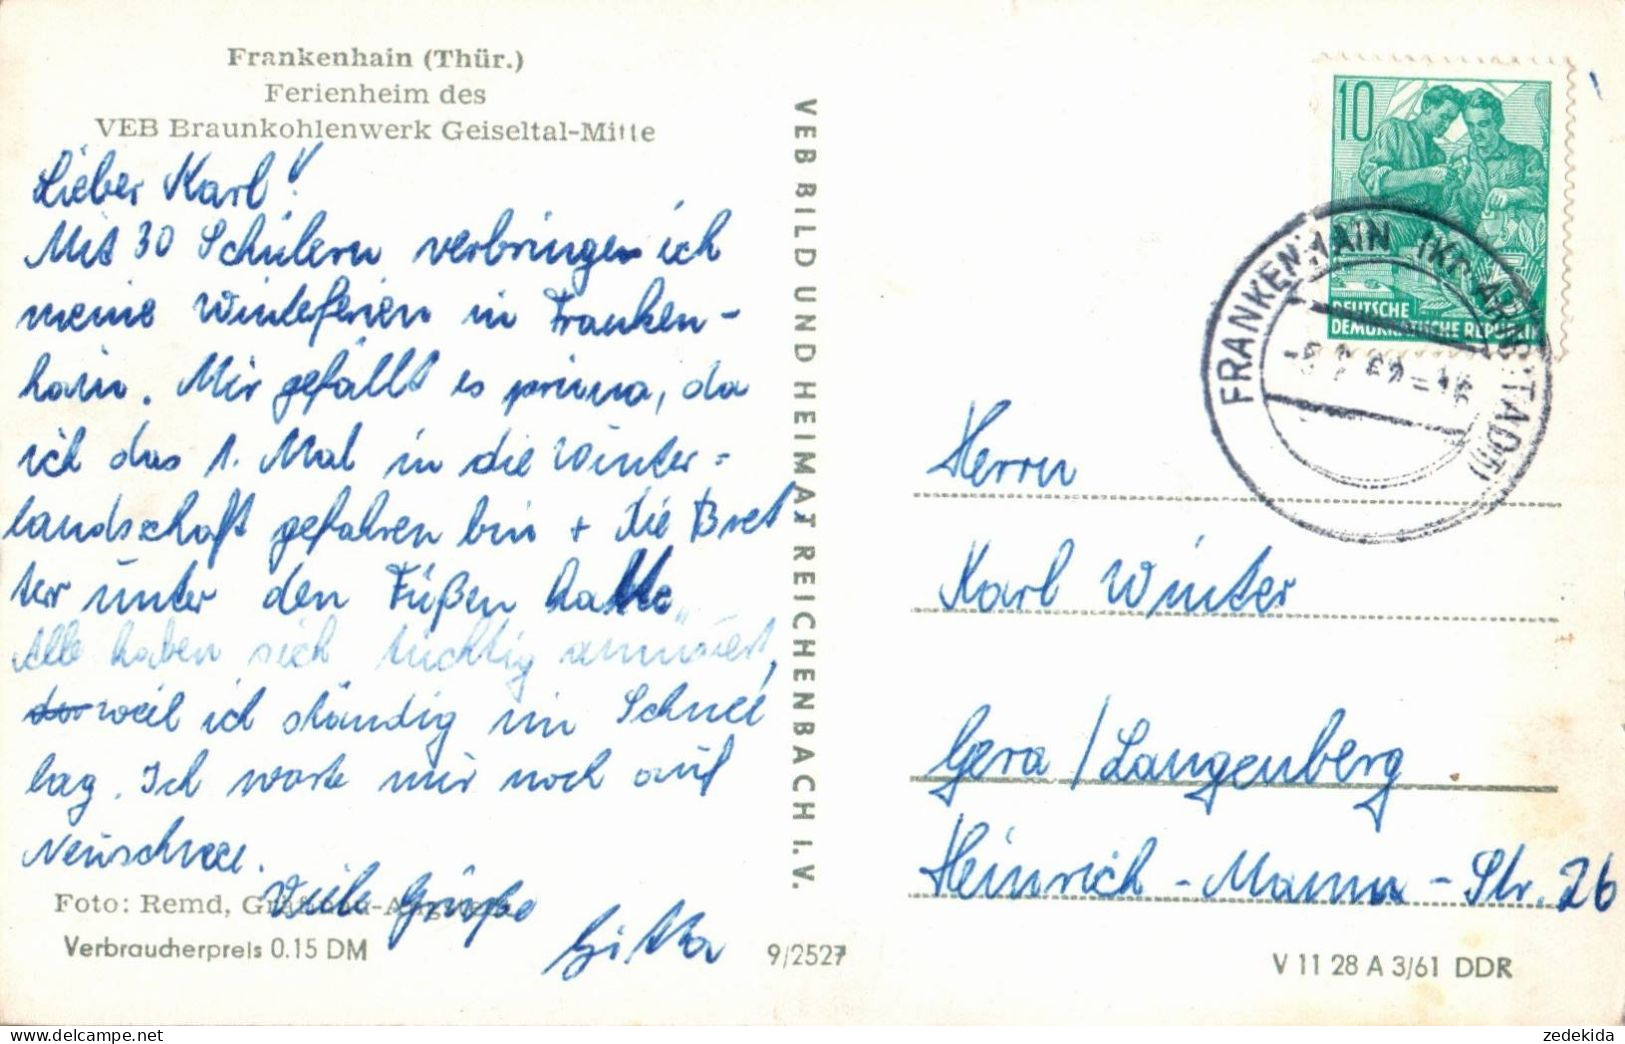 Frankenhain (Thür.)
Ferienheim des
VEB Braunkohlenwerk Geiseltal-Mitte
Lieber Karl!
Mit 30 Schülern verbringen ich
meine Winterferien in Franken-
hain. Mir gefällt es prima, da
ich das 1. Mal in die Winter=
landschaft gefahren bin + die Bret
ter unter den Füßen hatte.
Alle haben sich tüchtig amüsiert,
weil ich ständig im Schnee
lag. Ich warte nur noch auf
Neuschnee.
Viele Grüße
Gitta
Foto: Remd,
Verbraucherpreis 0.15 DM
9/2527
VEB BILD UND HEIMAT REICHENBACH I. V.
10
DEUTSCHE
DEMOKRATISCHE REPUBLIK
FRANKENHAIN (KR. ARNSTADT)
Herrn
Karl Winter
Gera / Langenberg
Heinrich-Mann-Str. 26
V 11 28 A 3/61 DDR
zedekida